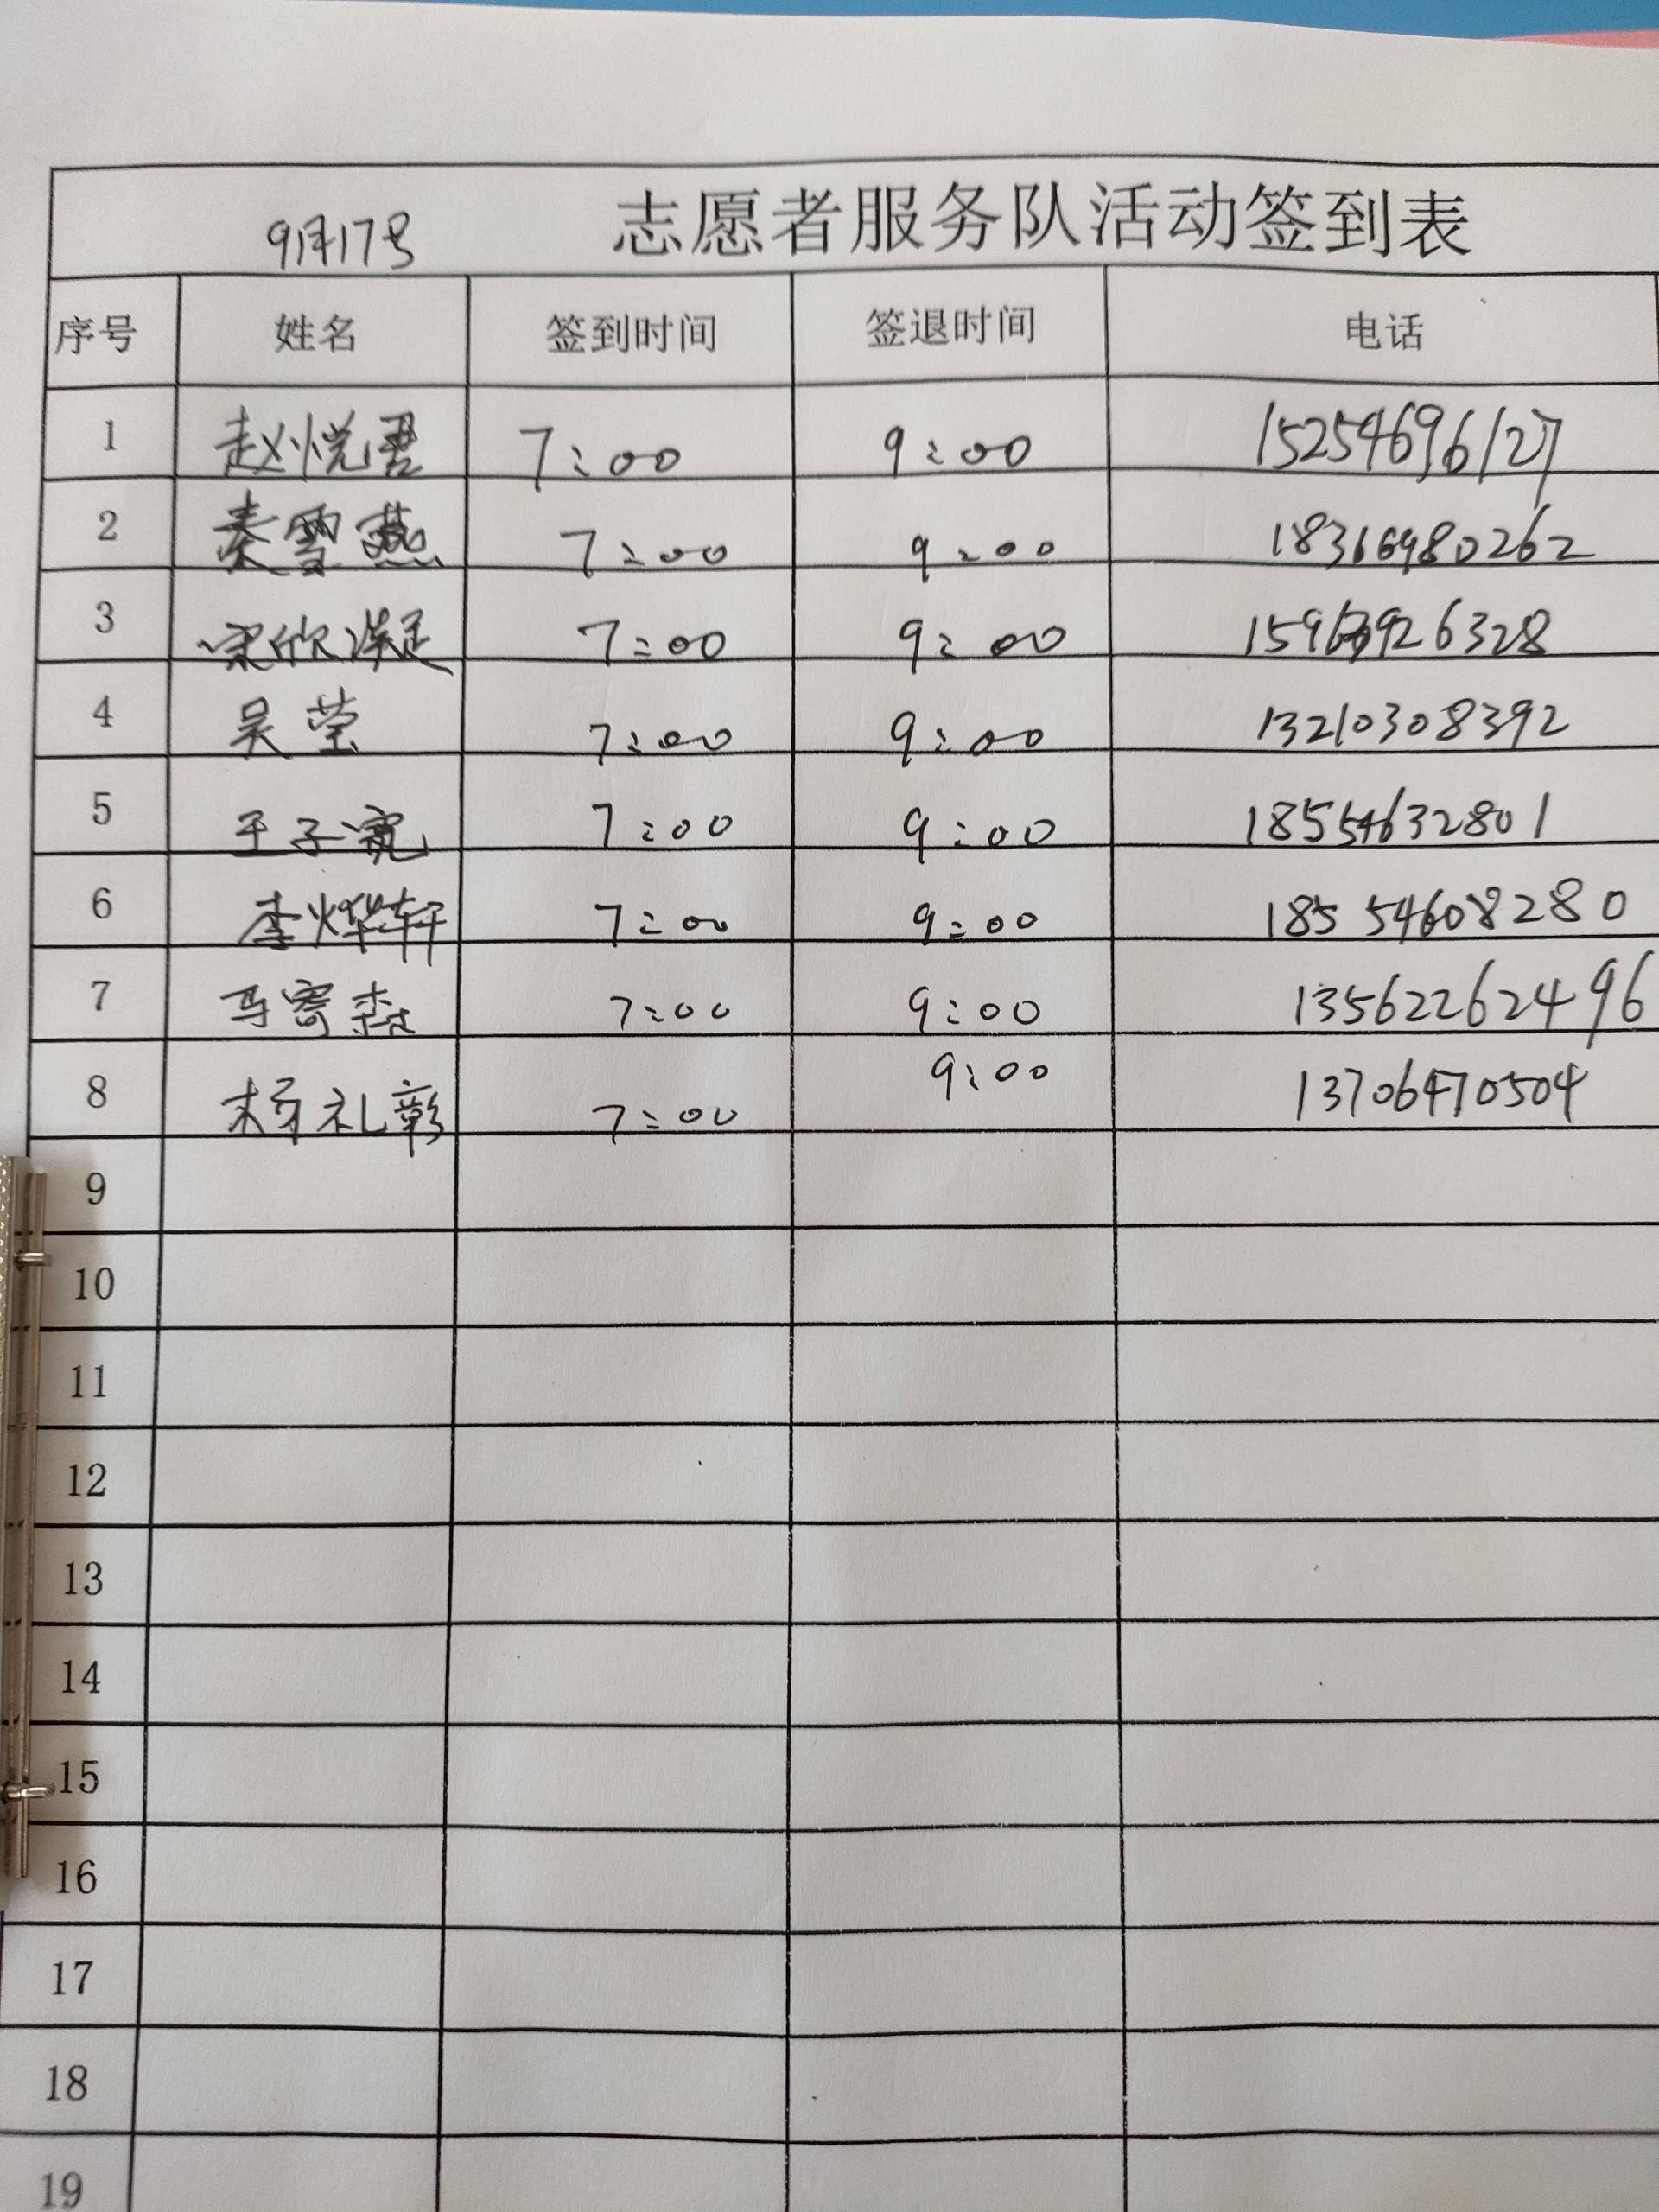 9月17号 志愿者服务队活动签到表
序号 姓名 签到时间 签退时间 电话
1 赵悦君 7:00 9:00 15254696127
2 秦雪燕 7:00 9:00 18366980262
3 宋欣凝 7:00 9:00
4 吴莹 7:00 9:00 13210308392
5 王子宽 7:00 9:00 18554632801
6 李烨轩 7:00 9:00 18554608280
7 马寄森 7:00 9:00 13562262496
8 杨礼彰 7:00 9:00 13706470504
9
10
11
12
13
14
15
16
17
18
19